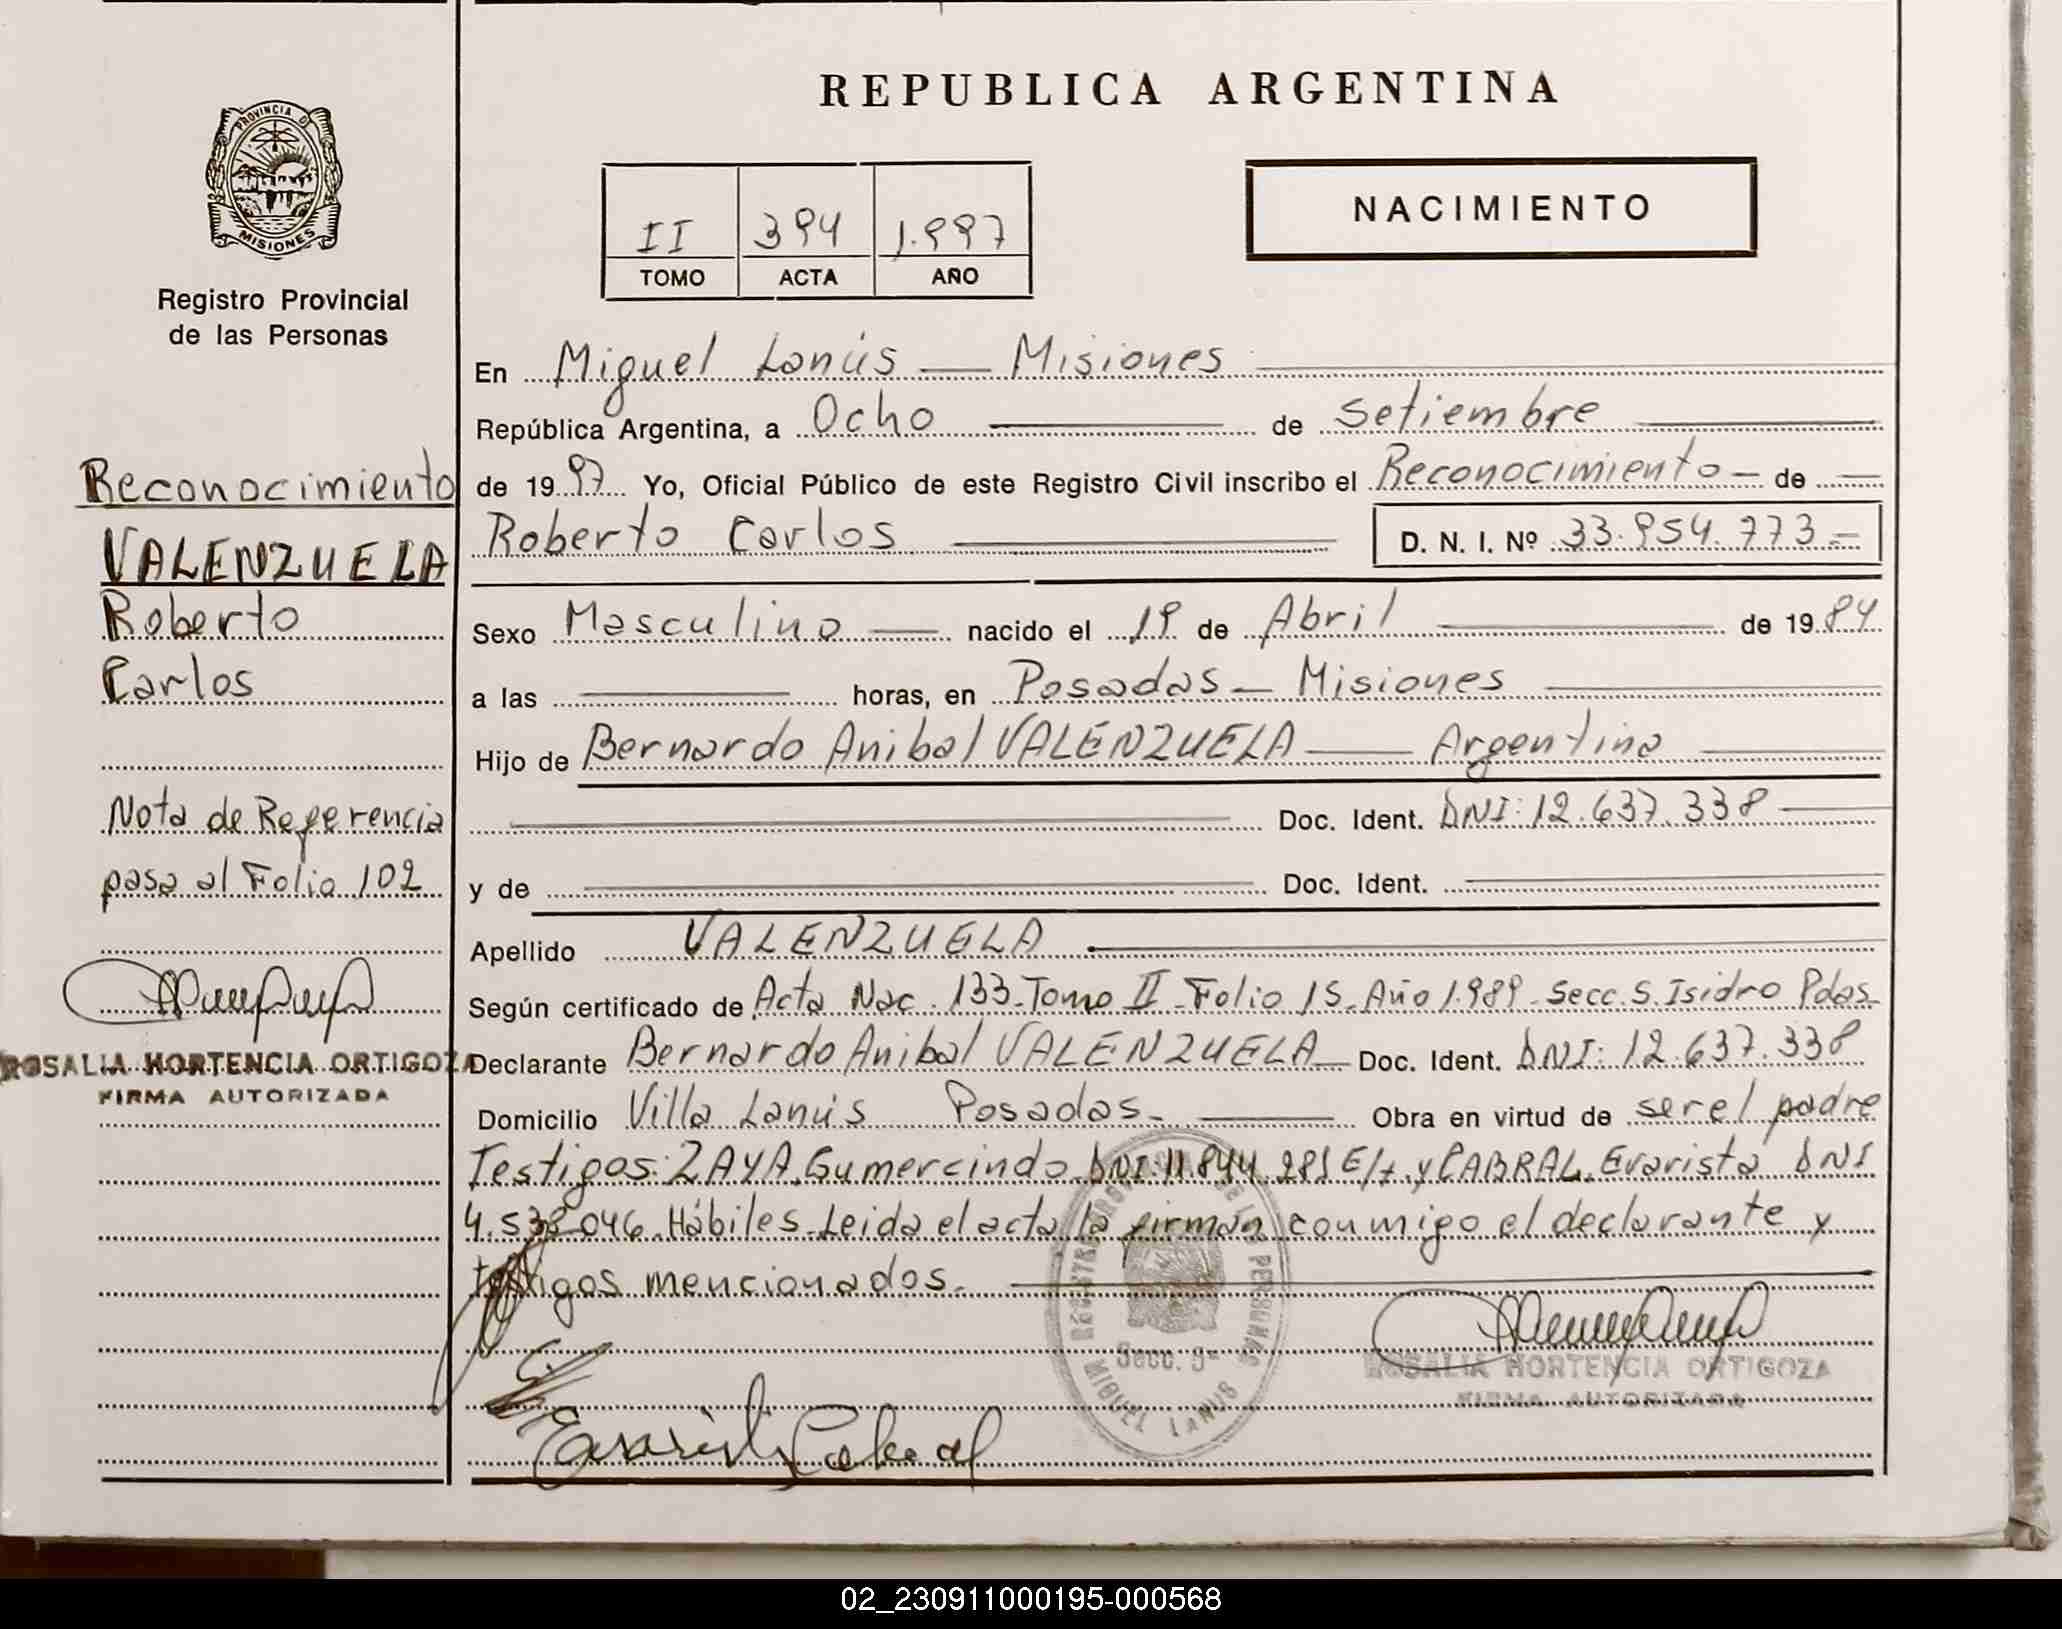 REPUBLICA ARGENTINA
PROVINCIA D
MISIONES
Registro Provincial
de las Personas
II 394 1.997
TOMO ACTA AÑO
NACIMIENTO
En Miguel Lanús — Misiones
República Argentina, a Ocho de Setiembre
de 1997 Yo, Oficial Público de este Registro Civil inscribo el Reconocimiento — de —
Roberto Carlos D. N. I. Nº 33.954.773.=
Sexo Masculino — nacido el 19 de Abril de 1984
a las horas, en Posadas — Misiones
Hijo de Bernardo Anibal VALENZUELA — Argentino
Doc. Ident. DNI: 12.637.338
y de Doc. Ident.
Apellido VALENZUELA
Según certificado de Acta Nac. 133-Tomo II-Folio 15-Año 1.989-Secc. S. Isidro Pdas
Declarante Bernardo Anibal VALENZUELA — Doc. Ident. DNI: 12.637.338
Domicilio Villa Lanús Posadas. — Obra en virtud de ser el padre
Testigos: ZAYA, Gumercindo DNI: 11.844.281 E/t. y CABRAL, Evarista DNI
4.538.046. Hábiles. Leida el acta la firman conmigo el declarante y
testigos mencionados.
Evarist Cabral
REGISTRO PROV DE LAS PERSONAS
Secc. 9ª
MIGUEL LANUS
ROSALIA HORTENCIA ORTIGOZA
FIRMA AUTORIZADA
Reconocimiento
VALENZUELA
Roberto
Carlos
Nota de Referencia
pasa al Folio 102
ROSALIA HORTENCIA ORTIGOZA
FIRMA AUTORIZADA
02_230911000195-000568